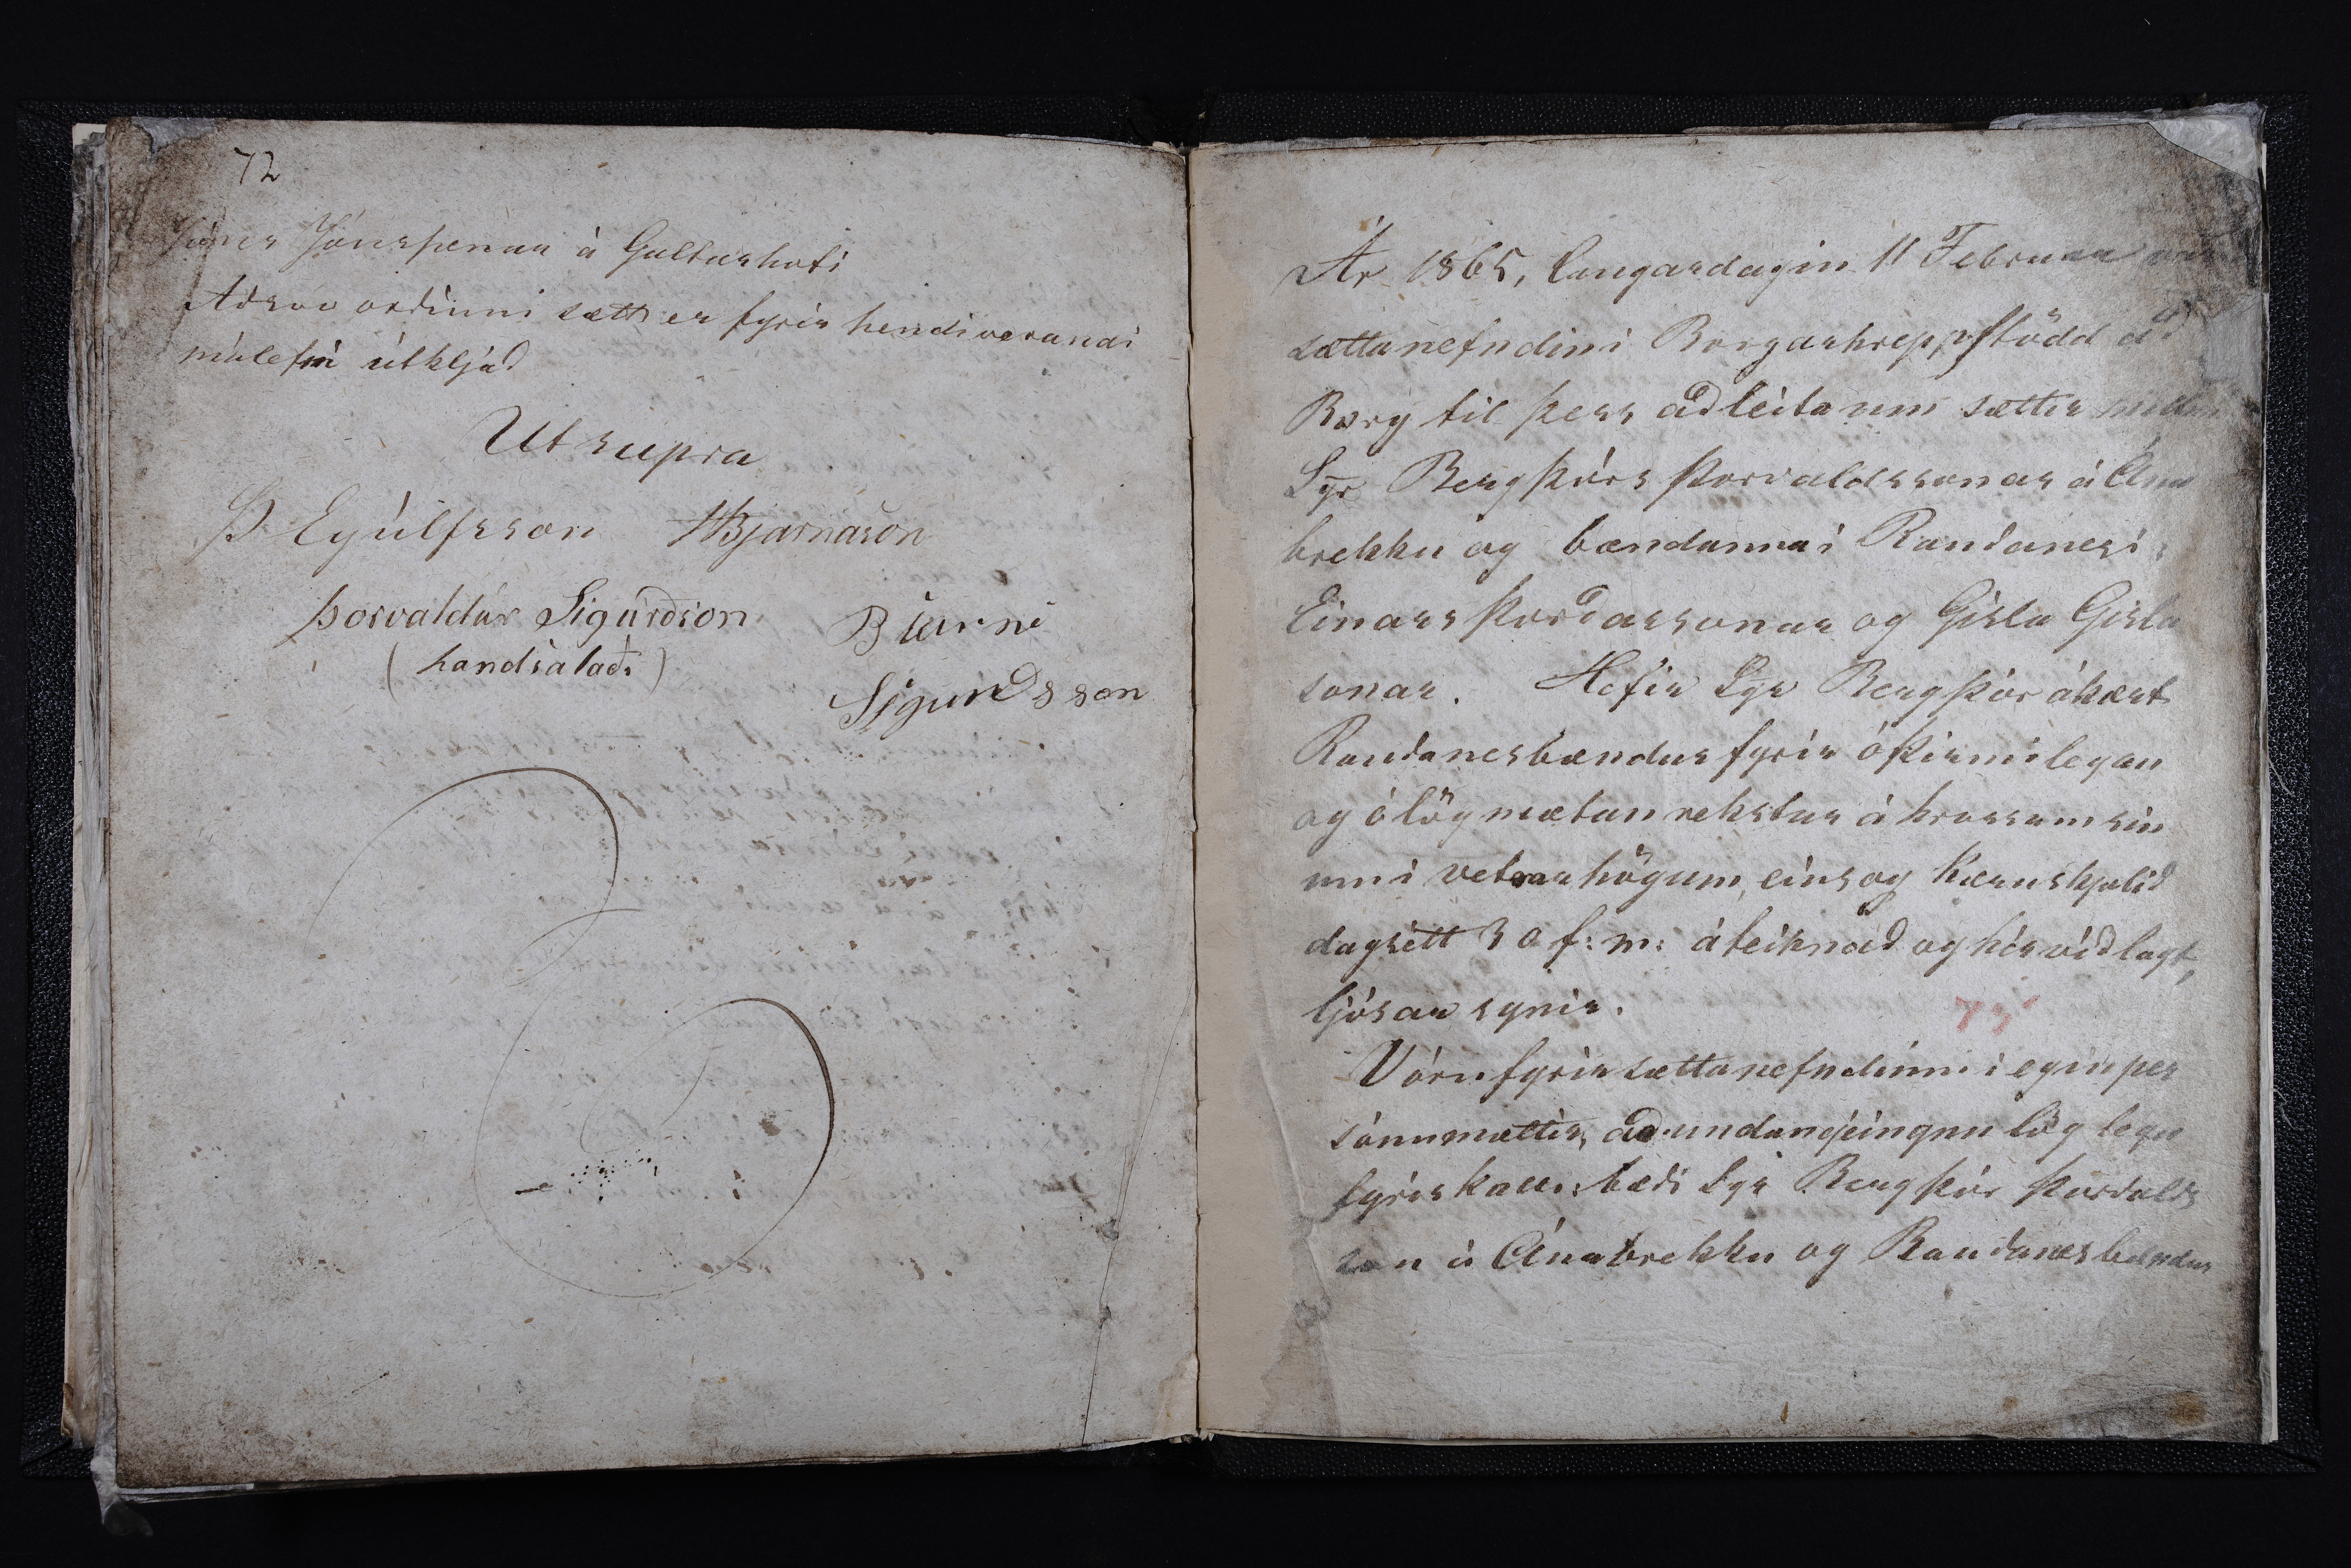 72
Jóns Jónssonar á Galtarholti
Að svo orðinni sætt er fyrir hendi veranai
málefni útkljáð
Ut supra
Þ Eyúlfsson HBjarnason
Þorvaldúr Sigúrðson Bjarni
(handsalaði) Sigurdsson
Ár 1865, laugardagin 11 Februar var
sættanefndin i Borgarhrepp stödd að
Borg til þess að leita um sættir milli
Sgr Bergþórs Þorvaldssonar á Ána
brekku og bændanna i Rauðanesi:
Einars Þorðarssonar og Gisla Gisla
sonar. Hefir Sgr Bergþór ákært
Rauðanesbændur fyrir óþirmilegan
og ólögmætan rekstur á hrossum sin
um i vetrarhögum, eins og kæruskjalið
dagsett 30 f: m: áteiknað og hér viðlagt,
ljósar synir.
75
Vóru fyrir sættanefndinni i egin per
sónu mættir, að undangeingnu lög legu
fyrirkalli: bæði Sgr Bergþór Þorvalds
son á Ánabrekku og Rauðanesbændur